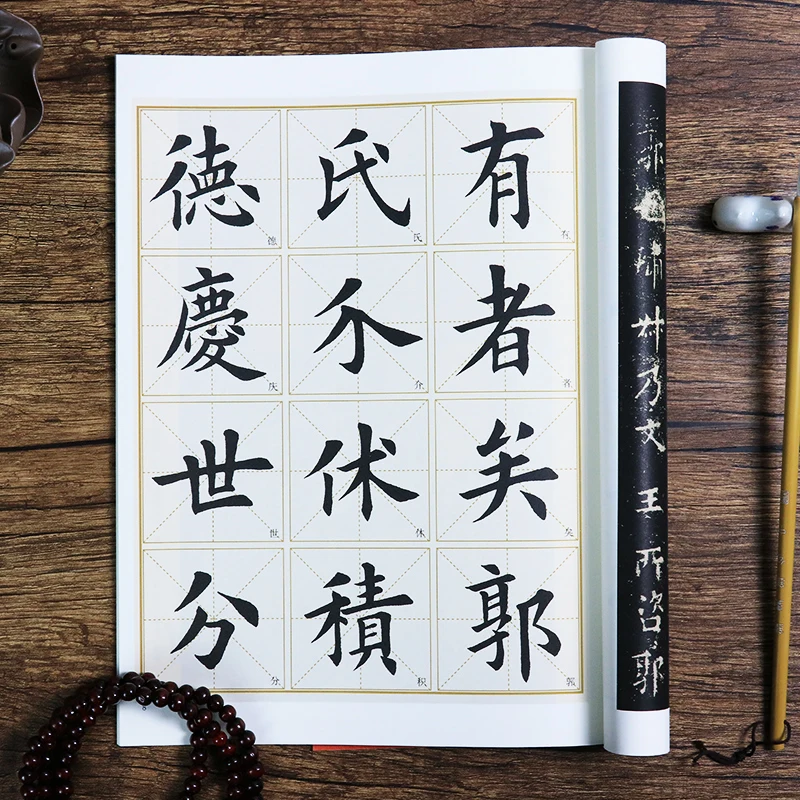 郭
林乃文王所咨郭
有者矣郭
有者矣郭
氏介休積
氏介休积
德慶世分
德庆世分